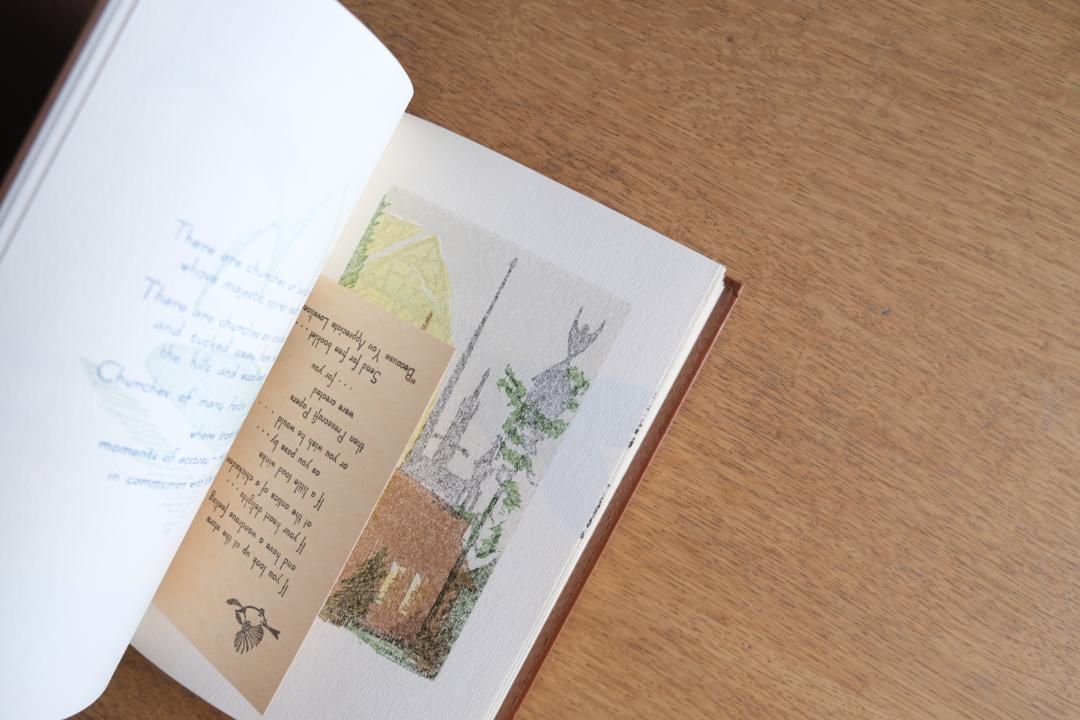 There are churches on
whose majestic spires
There are churches on
and tucked away
the hills and
Churches of many
where
moments of ecstasy -
in communion
If you look up at the stars
and have a wondrous feeling
If your heart delights . . .
at the antics of a chickadee
If a little toad winks
as you pass by . . .
or you wish he would
then Presscraft Papers
were created
. . . for you
Send for free booklet . . .
"Because You Appreciate